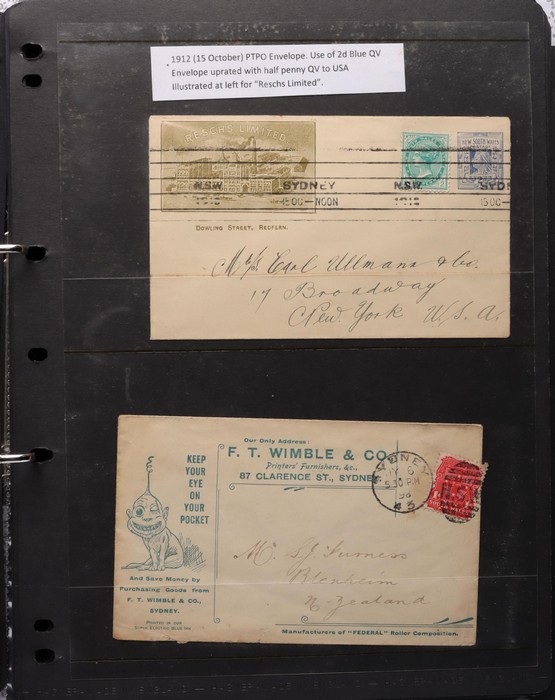 1912 (15 October) PTPO Envelope. Use of 2d Blue QV
Envelope uprated with half penny QV to USA
Illustrated at left for "Reschs Limited".
RESCHS LIMITED
NEW SOUTH WALES
N.S.W. SYDNEY N.S.W. SYDN
15 OC–NOON 15 OC–
DOWLING STREET, REDFERN.
Carl Ullmann & Co.
17 Broadway
New York U.S.A.
Our Only Address:
F. T. WIMBLE & CO
Printers' Furnishers, &c.,
87 CLARENCE ST., SYDNE
KEEP
YOUR
EYE
ON
YOUR
POCKET
SYDNEY
5 30 PM
98
And Save Money by
Purchasing Goods from
F. T. WIMBLE & CO.,
SYDNEY.
PRINTED IN OUR
Mr. Furness
Blenheim
N. Zealand
Manufacturers of "FEDERAL" Roller Composition.